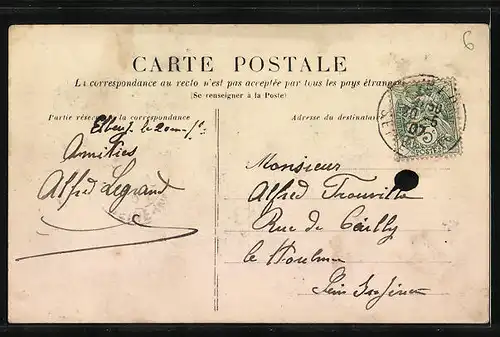 6
CARTE POSTALE
La correspondance au recto n'est pas acceptée par tous les pays étrangers
(Se renseigner à la Poste)
Partie réservée à la correspondance
Adresse du destinataire
Elbeuf. le 20
Amitiés
Alfred Legrand
Monsieur
Alfred
Rue de Cailly
le Houlme
Seine Inférieure